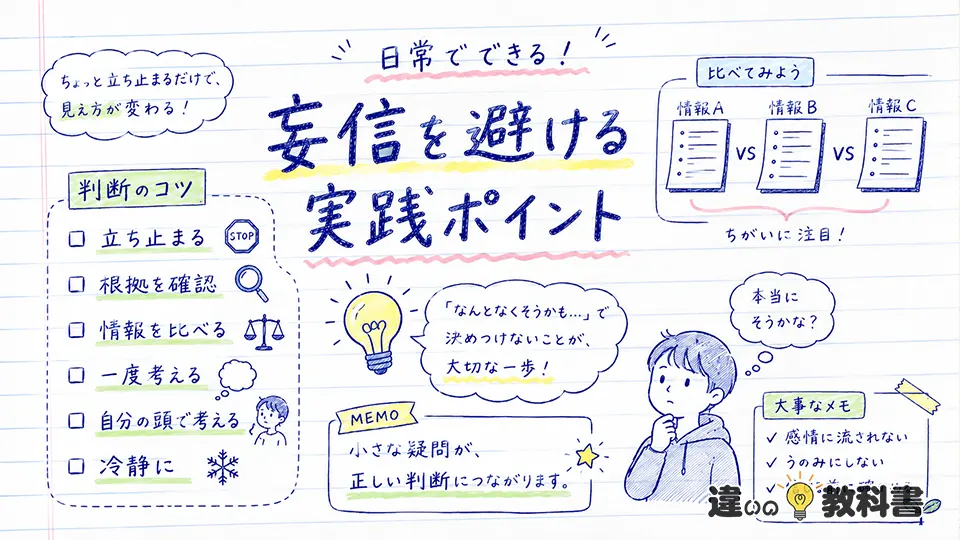 日常でできる！
妄信を避ける
実践ポイント
ちょっと立ち止まるだけで、
見え方が変わる！
判断のコツ
立ち止まる
STOP
根拠を確認
情報を比べる
一度考える
自分の頭で考える
冷静に
比べてみよう
情報A
VS
情報B
VS
情報C
ちがいに注目！
「なんとなくそうかも…」で
決めつけないことが、
大切な一歩！
本当に
そうかな？
MEMO
小さな疑問が、
正しい判断につながります。
大事なメモ
✓ 感情に流されない
✓ うのみにしない
違いの教科書